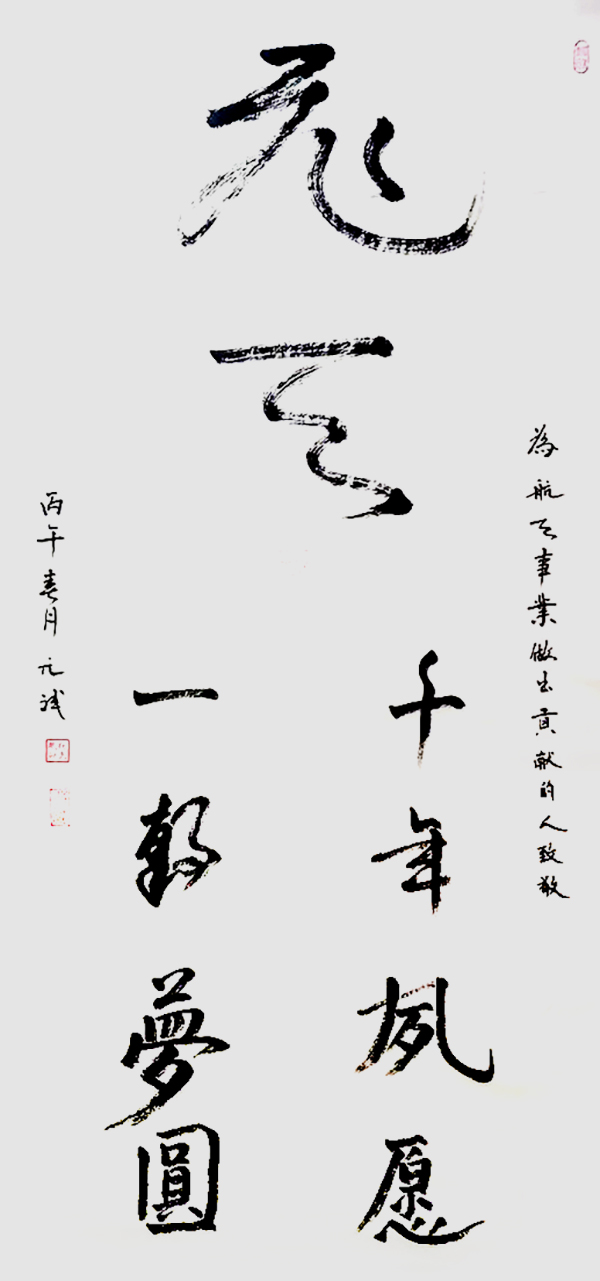 為航天事業做出貢献的人致敬
飛天
千年夙愿
一朝夢圓
丙午春月 元诚